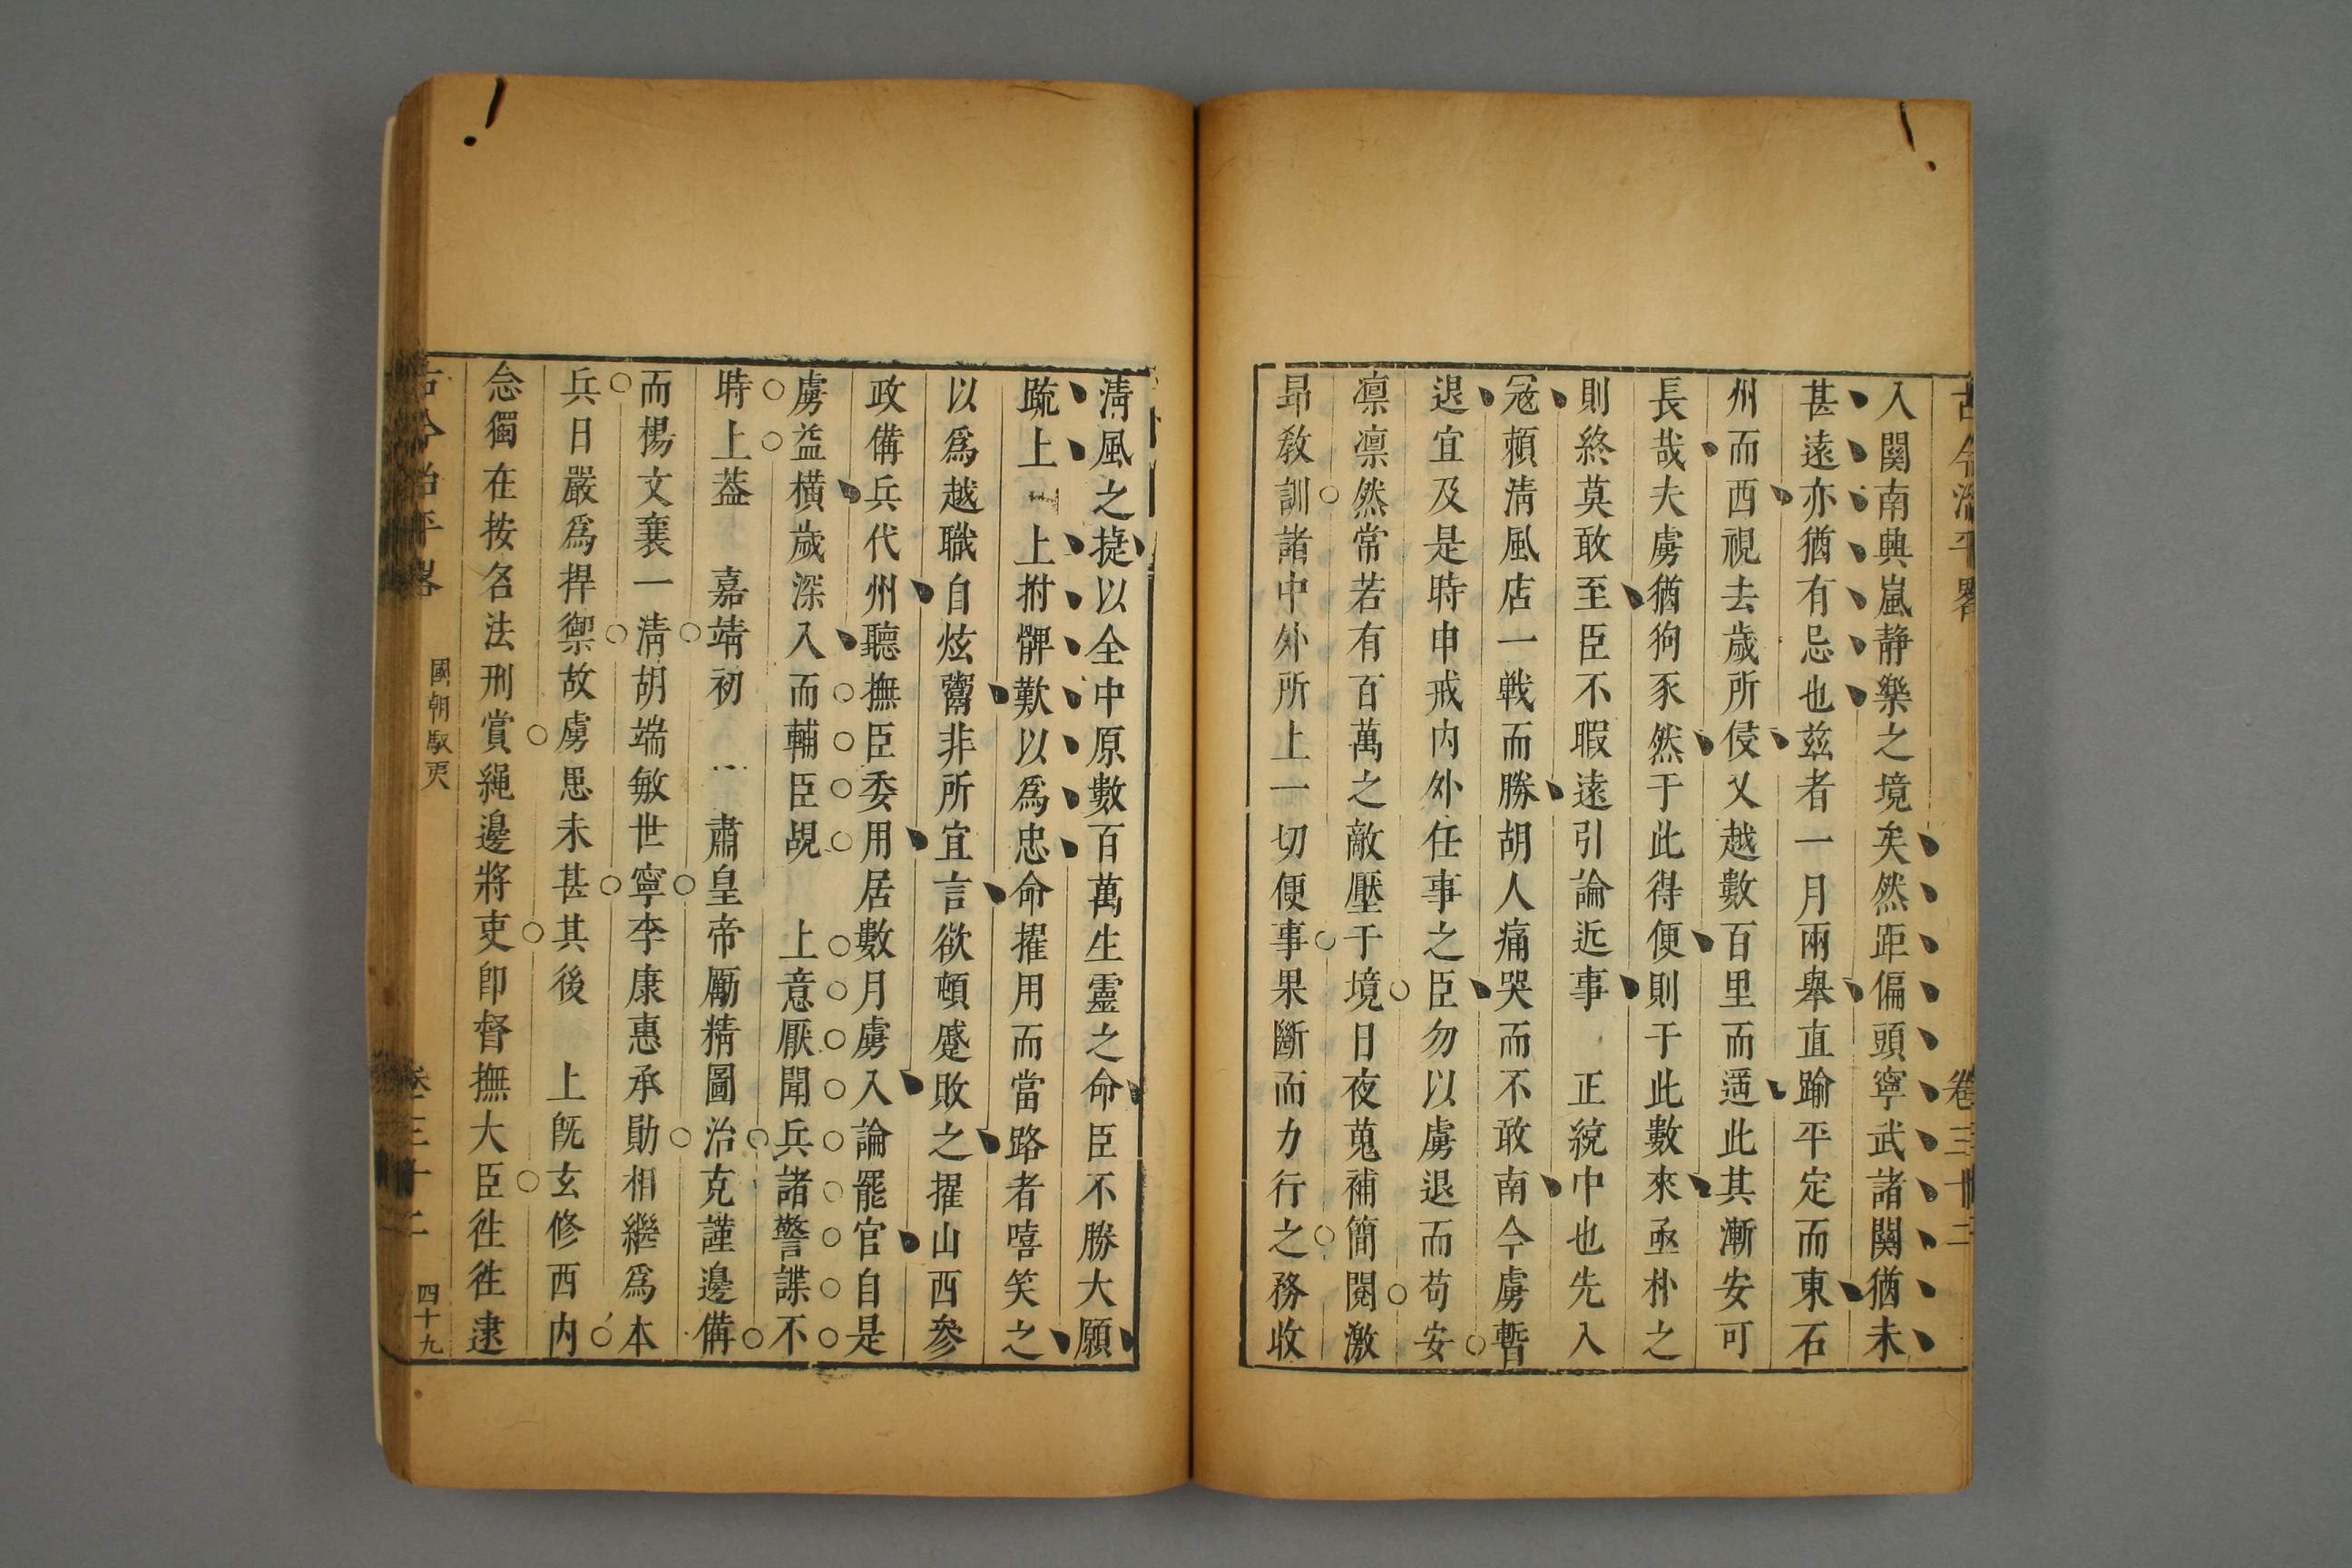 古今治平畧
卷三十二
入關南興嵐静樂之境矣然距偏頭寧武諸關猶未
甚遠亦猶有忌也茲者一月兩舉直踰平定而東石
州而西視去歲所侵又越數百里而遥此其漸安可
長哉夫虜猶狗豕然于此得便則于此數來亟朴之
則終莫敢至臣不暇遠引論近事　正統中也先入
冦頼淸風店一戰而勝胡人痛哭而不敢南今虜暫
退宜及是時申戒内外任事之臣勿以虜退而苟安
凛凛然常若有百萬之敵壓于境日夜蒐補簡閱激
昻敎訓諸中外所上一切便事果斷而力行之務收
淸風之捷以全中原數百萬生靈之命臣不勝大願
疏上　上拊髀歎以爲忠命擢用而當路者嘻笑之
以爲越職自炫鬻非所宜言欲頓蹙敗之擢山西參
政備兵代州聽撫臣委用居數月虜入論罷官自是
虜益橫歲深入而輔臣覘　上意厭聞兵諸警諜不
時上葢　嘉靖初　肅皇帝厲精圖治克謹邊備
而楊文襄一淸胡端敏世寧李康惠承勛相繼爲本
兵日嚴爲捍禦故虜患未甚其後　上旣玄修西内
念獨在按名法刑賞繩邊將吏卽督撫大臣徃徃逮
古今治平畧
國朝馭夷
卷三十二
四十九